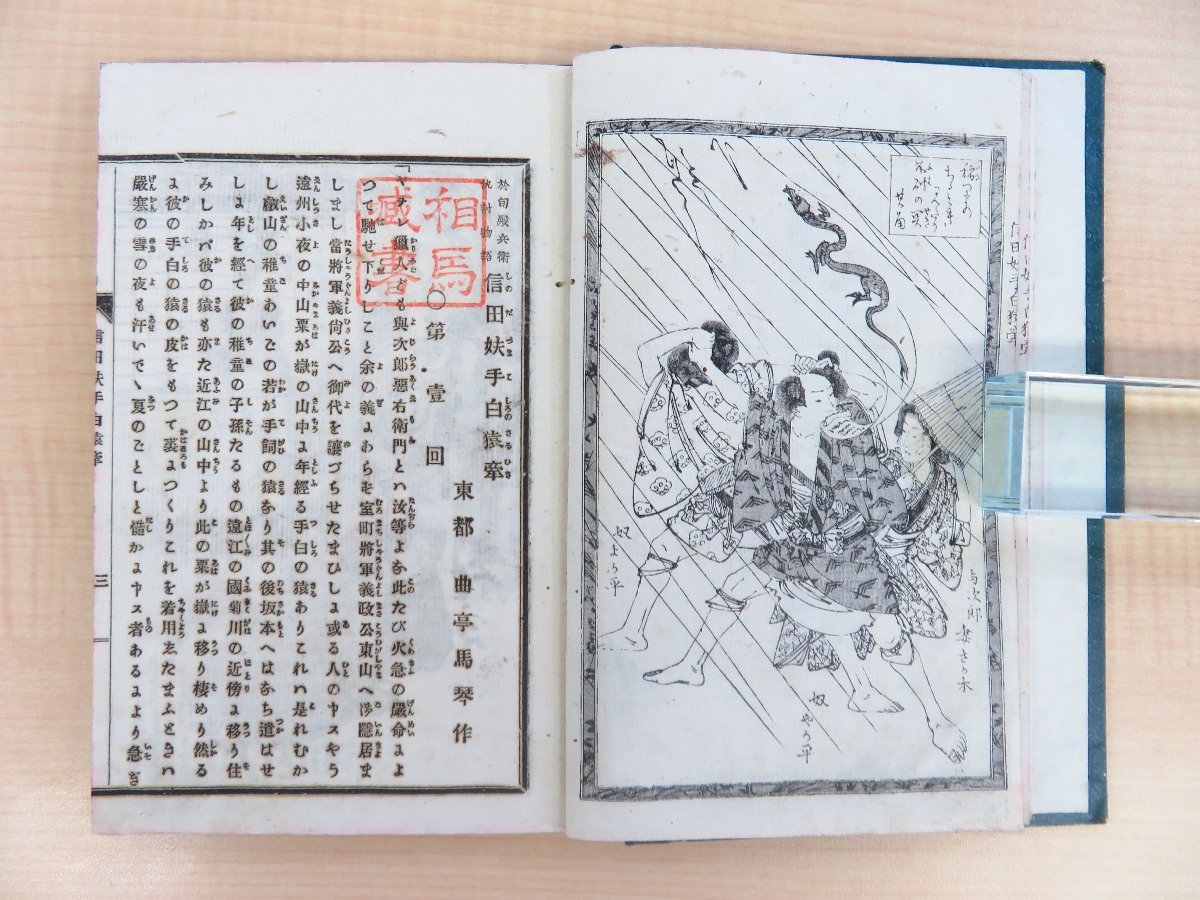 於旬殿兵衛
仇討物語
信田妖手白猿牽
東都 曲亭馬琴作
○第壹回
「ヤアレ獵人ども與次郎惡右衛門とハ汝等よな此たび火急の嚴命よよ
つて馳せ下りしこと余の義よあらず室町將軍義政公東山へ御隱居ま
しまし當將軍義尙公へ御代を讓づちせたまひしよ或る人の中スやう
遠州小夜の中山粟が嶽の山中よ年經る手白の猿ありこれハ是れむか
し叡山の稚堂あいごの若が手飼の猿なり其の後坂本へはなち遣はせ
しよ年を經て彼の稚童の子孫たるもの遠江の國菊川の近傍よ移り住
みしかバ彼の猿も亦た近江の山中より此の粟が嶽よ移り棲めり然る
よ彼の手白の猿の皮をもつて裘よつくりこれを着用したまふときハ
嚴寒の雪の夜も汗いで、夏のごとしと慥かよ中ス者あるより急ぎ
信田妖手白猿牽
三
相馬
藏書
其角
奴よか平
与次郎
妻さゝ木
奴やか平